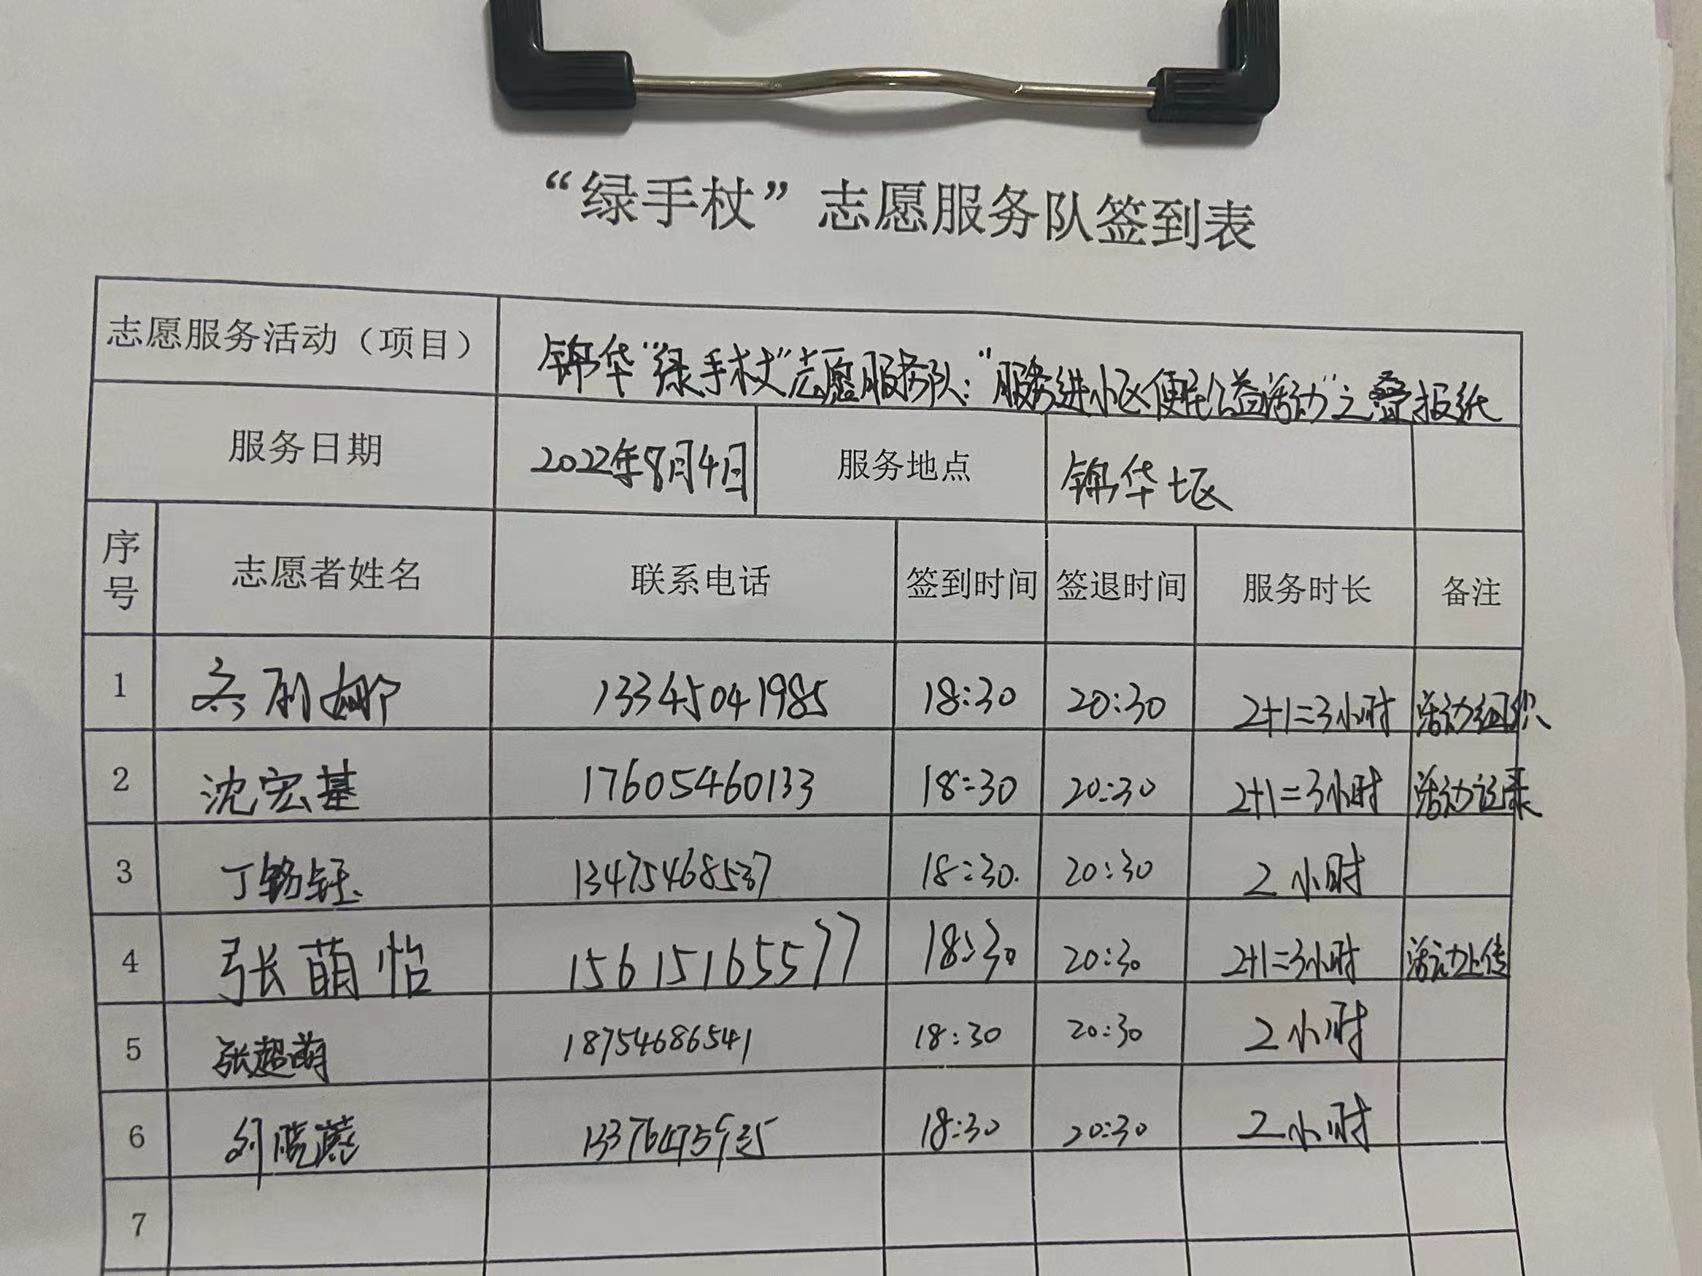 “绿手杖”志愿服务队签到表
志愿服务活动（项目） 锦华“绿手杖”志愿服务队：“服务进小区便民公益活动”之叠报纸
服务日期 2022年8月4日 服务地点 锦华七区
序号 志愿者姓名 联系电话 签到时间 签退时间 服务时长 备注
1 13345041985 18:30 20:30 2+1=3小时 活动组织
2 沈宏基 17605460133 18:30 20:30 2+1=3小时 活动记录
3 13475468537 18:30 20:30 2小时
4 张萌怡 15615165577 18:30 20:30 2+1=3小时 活动上传
5 张超萌 18754686541 18:30 20:30 2小时
6 18:30 20:30 2小时
7